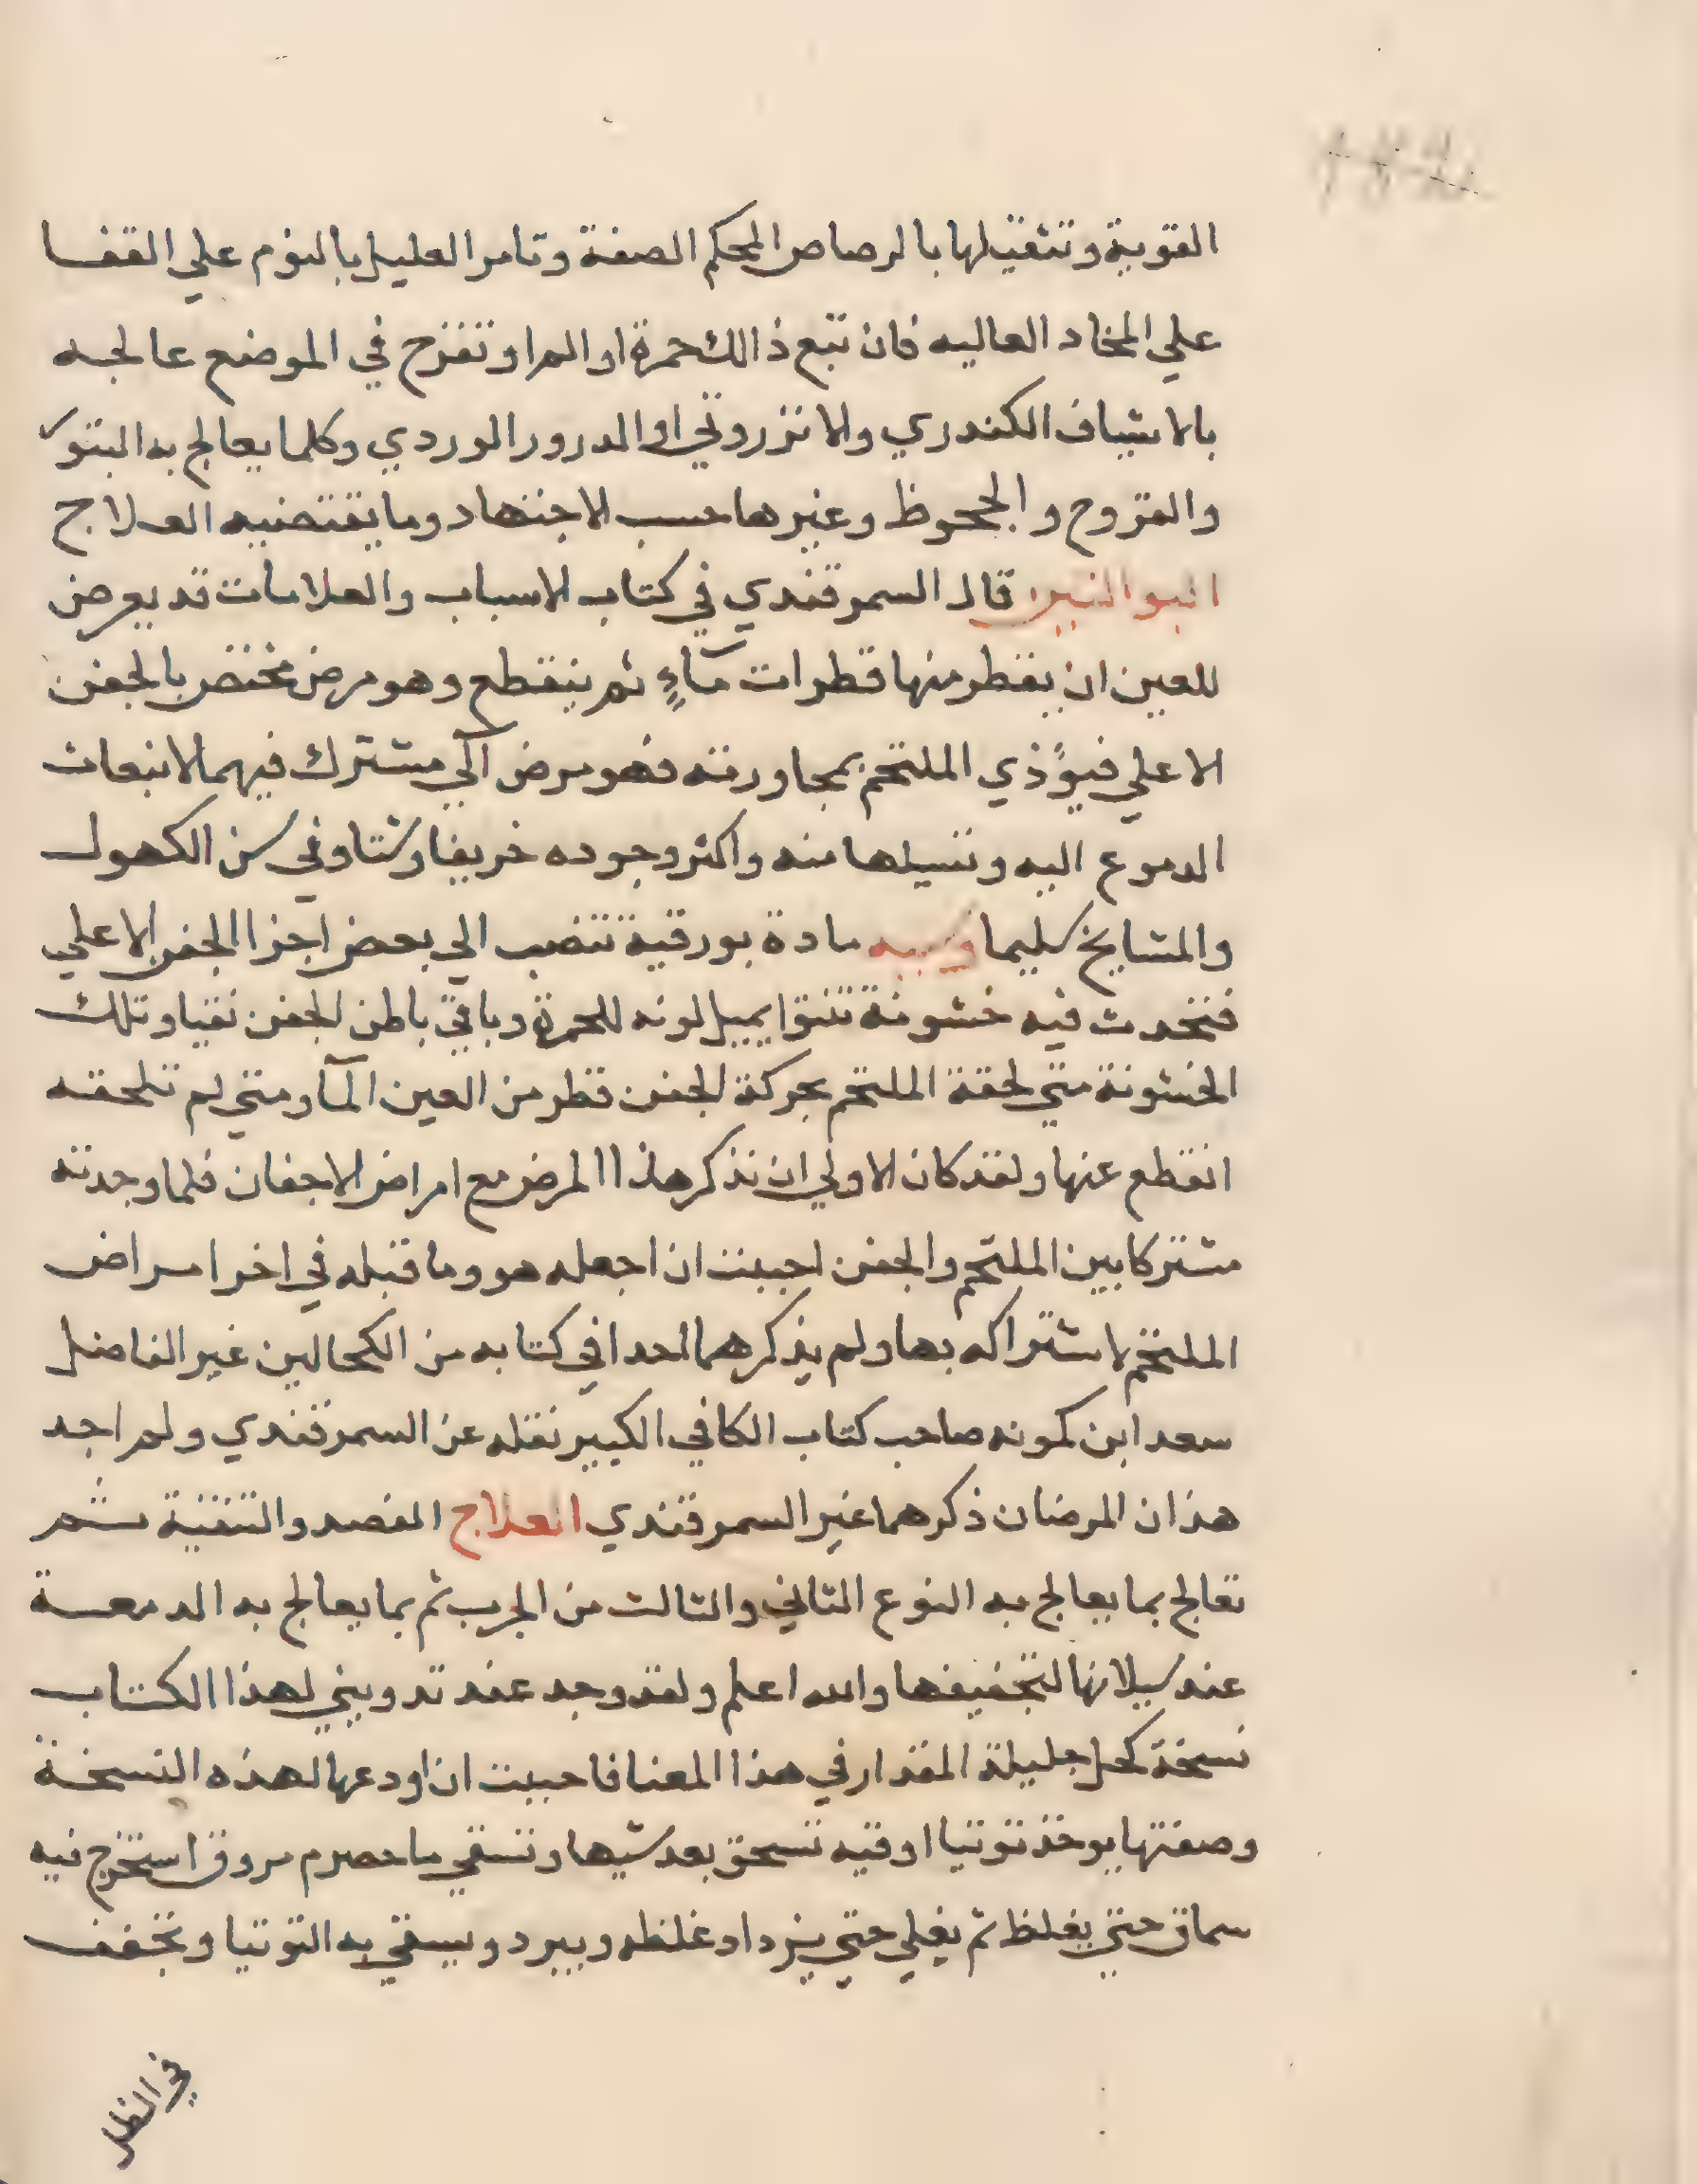 القوية وتثقيلها بالرصاص المحكم الصفة وتامر العليل بالنوم علي القفا
علي المخاد العاليه فان تبع ذالك حمرة او الم او تقرح في الموضع عالجه
بالاشياف الكندري والانزروتي او الدرور الوردي وكلما يعالج به النتو
والقروح والجحوظ وغيرها حسب الاجتهاد وما يقتضيه العلاج
قال السمرقندي في كتاب الاسباب والعلامات قد يعرض
للعين ان يقطر منها قطرات مآءٍ ثم ينقطع وهو مرض مختص بالجفن
الاعلي فيؤذي الملتحم بمجاورته فهو مرض آلي مشترك فيهما لانبعاث
الدموع اليه وتسيلها منه واكثر وجوده خريفا وشتا وفي سن الكهول
والمشايخ سليما وسببه مادة بورقية تنصب الي بعض اجزا الجفن الاعلي
فتحدث فيه خشونة تنتوا يميل لونه للحمرة وباقي باطن الجفن نقيا وتلك
الخشونة متي لحقة الملتحم بحركة الجفن قطر من العين المآء ومتي لم تلحقه
انقطع عنها ولقد كان الاولي ان نذكر هذا المرض مع امراض الاجفان فلما وجدته
مشتركا بين الملتحم والجفن احببت ان اجعله هو وما قبله في اخر امراض
الملتحم لاشتراكه بها ولم يذكرهما احدا في كتابه من الكحالين غير الفاضل
سعد ابن كمونه صاحب كتاب الكافي الكبير نقله عن السمرقندي ولم اجد
هذان المرضان ذكرهما غير السمرقندي العلاج الفصد والتنقية ثم
تعالج بما يعالج به النوع الثاني والثالث من الجرب ثم بما يعالج به الدمعة
عند سيلانها لتجفيفها والله اعلم ولقد وجد عند تدويني لهذا الكتاب
نسخة كحل جليلة المقدار في هذا المعنا فاحببت ان اودعها لهذه النسخة
وصفتها يوخذ توتيا اوقيه تسحق بعد شيها وتسقي ما حصرم مروق استخرج فيه
سماق حتي يغلظ ثم يغلي حتي يزداد غلظه ويبرد ويسقي به التوتيا وتجفف
في الظل